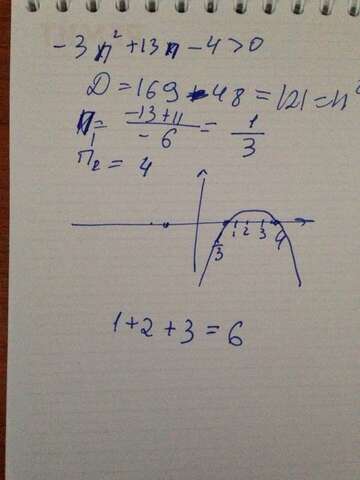 -3n²+13n-4>0
D=169-48=121=11²
n₁=(-13+11)/(-6)=1/3
n₂=4
1/3 1 2 3 4
1+2+3=6